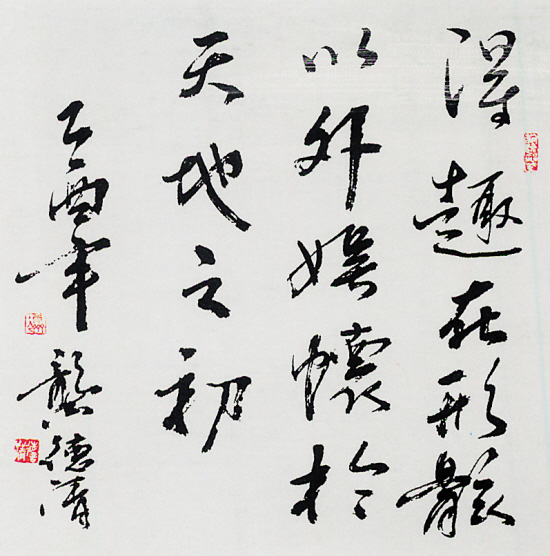 得趣在形骸
以外娱怀於
天地之初
乙酉年 龚德清